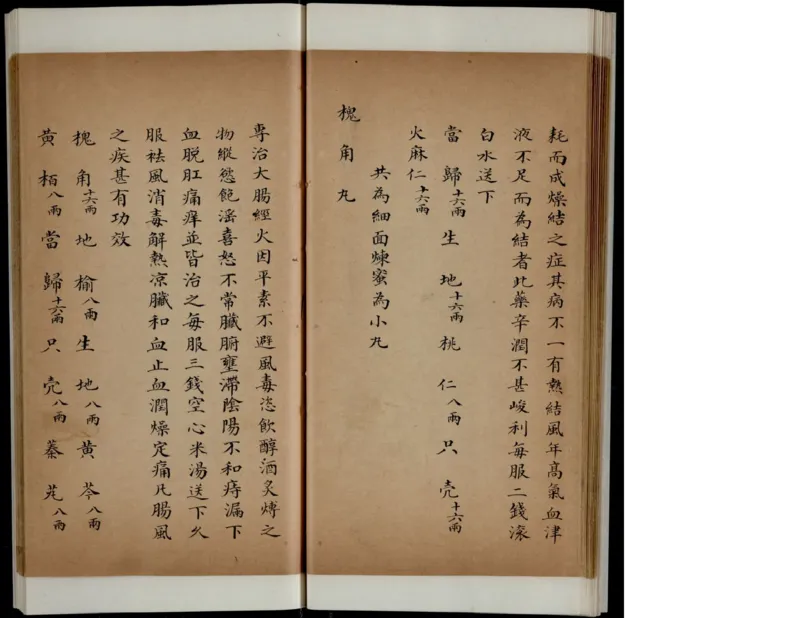 耗而成燥結之症其病不一有熱結風年髙氣血津
液不足而為結者此藥辛潤不甚峻利每服二錢滚
白水送下
當歸十六兩 生地十六兩 桃仁八兩 只壳十六兩
火麻仁十六兩
共為細面煉蜜為小丸
槐角丸
專治大腸經火因平素不避風毒恣飲醇酒炙煿之
物縱慾飽滛喜怒不常臟腑壅滯陰陽不和痔漏下
血脱肛痛痒並皆治之每服三錢空心米湯送下久
服祛風消毒解熱凉臟和血止血潤燥定痛凡腸風
之疾甚有功效
槐角十六兩 地榆八兩 生地八兩 黄芩八兩
黄栢八兩 當歸十六兩 只壳八兩 蓁艽八兩